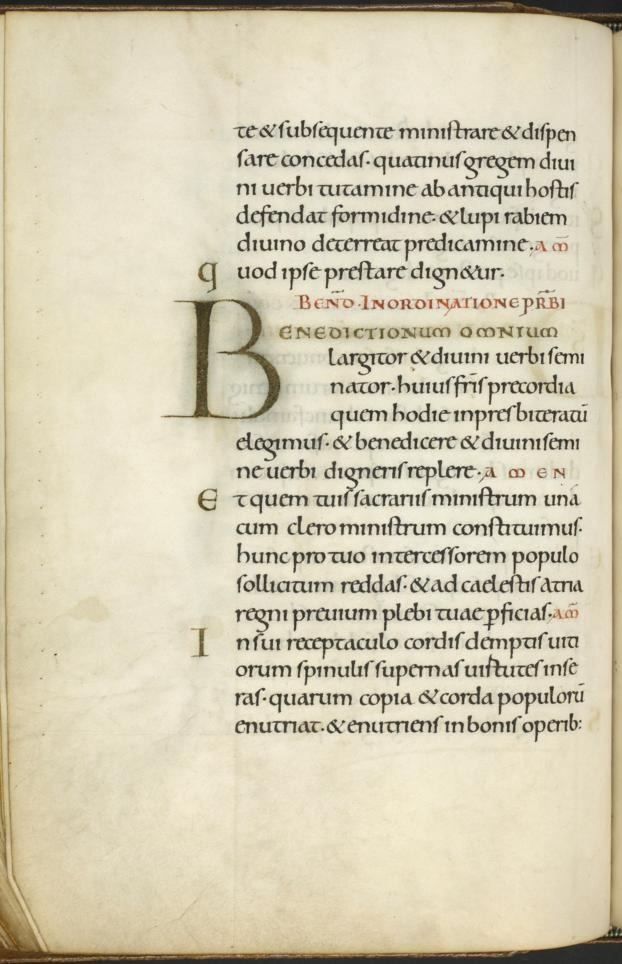 te & subsequente ministrare & dispen
sare concedas· quatinus gregem diui
ni uerbi tutamine ab antiqui hostis
defendat formidine· & lupi rabiem
diuino deterreat predicamine· am̄
quod ipse prestare dign&ur·
BEND̄· IN ORDINATIONE PRB̄I
BENEDICTIONUM OMNIUM
largitor & diuini uerbi semi
nator· huius fr̄is precordia
quem hodie in presbiteratū
elegimus· & benedicere & diuini semi
ne uerbi digneris replere· AMEN
Et quem tuis sacrariis ministrum unā
cum clero ministrum constituimus·
hunc pro tuo intercessorem populo
sollicitum reddas· & ad caelestis atria
regni preuium plebi tuae ꝑficias· am̄
In sui receptaculo cordis demptis uiti
orum spinulis supernas uirtutes inse
ras· quarum copia & corda populorū
enutriat· & enutriens in bonis operib: